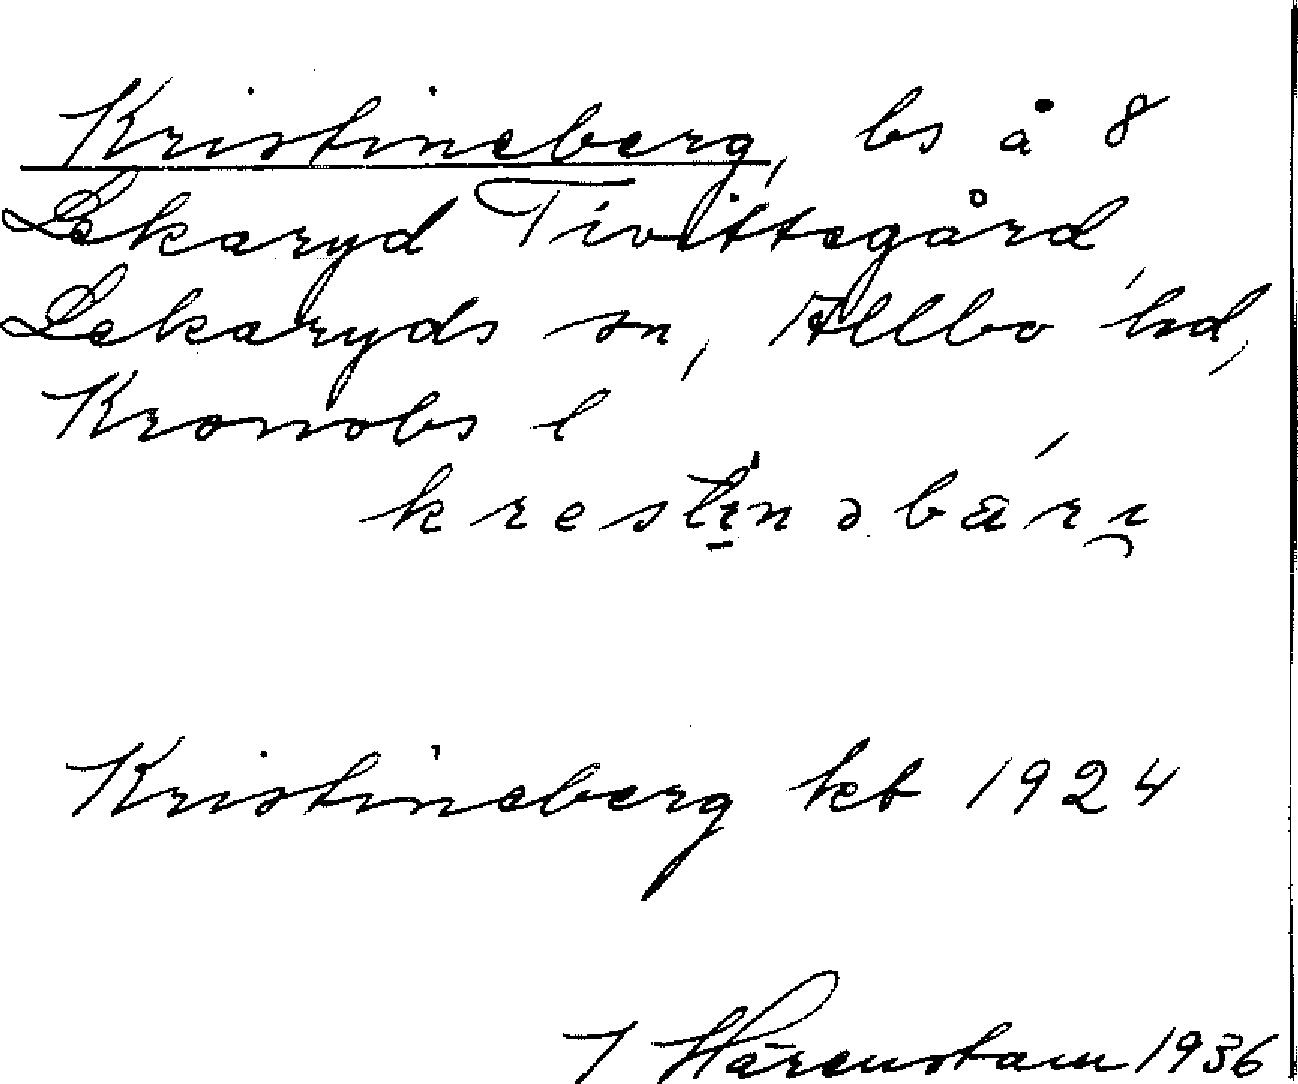 Kristineberg, bs å 8
Lekaryd Tivittegård,
Lekaryds sn, Allbo hd,
Kronobs l
Kristineberg kb 1924
T Härenstam 1936